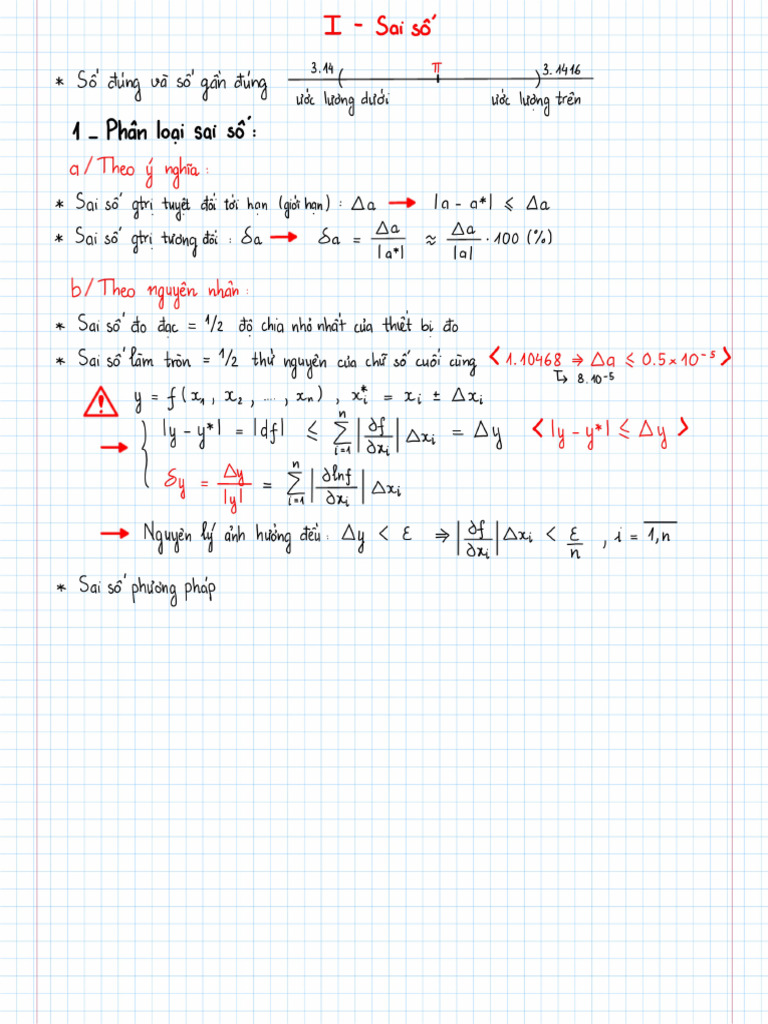 I - Sai số
* Số đúng và số gần đúng 3.14 ( π ) 3.1416
ước lương dưới ước lượng trên
1 - Phân loại sai số:
a/ Theo ý nghĩa:
* Sai số gtrị tuyệt đối tới hạn (giới hạn): Δa → |a - a*| ⩽ Δa
* Sai số gtrị tương đối: δa → δa = Δa/|a*| ≈ Δa/|a| . 100 (%)
b/ Theo nguyên nhân:
* Sai số đo đạc = 1/2 độ chia nhỏ nhất của thiết bị đo
* Sai số làm tròn = 1/2 thứ nguyên của chữ số cuối cùng < 1.10468 ⇒ Δa ⩽ 0.5 × 10⁻⁵ >
↳ 8.10⁻⁵
⚠ y = f(x₁, x₂, ..., xₙ), xᵢ* = xᵢ ± Δxᵢ
→ { |y - y*| = |df| ⩽ ∑ᵢ₌₁ⁿ |∂f/∂xᵢ| Δxᵢ = Δy < |y - y*| ⩽ Δy >
δy = Δy/|y| = ∑ᵢ₌₁ⁿ |∂lnf/∂xᵢ| Δxᵢ
→ Nguyên lý ảnh hưởng đều: Δy < ε ⇒ |∂f/∂xᵢ| Δxᵢ < ε/n, i = 1,n̅
* Sai số phương pháp